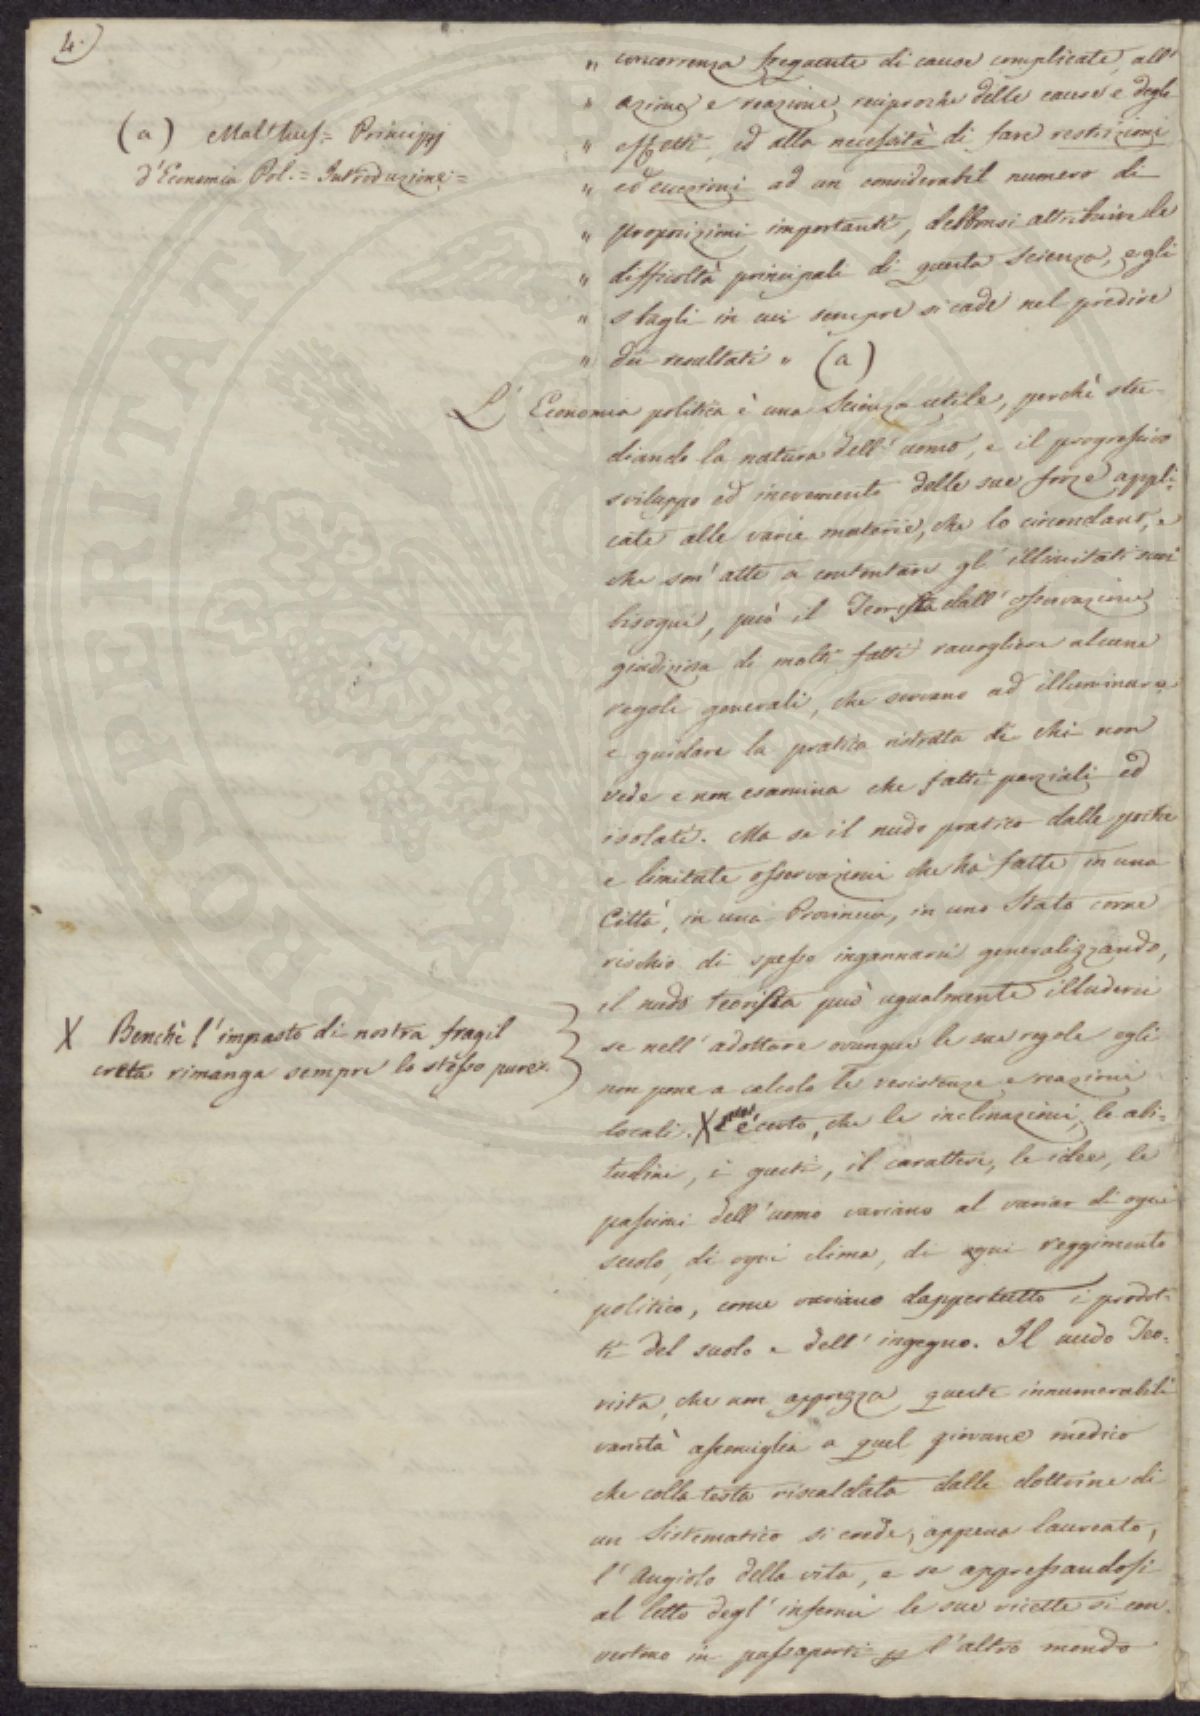 4.)
(a) Malthus = Principj
d'Economia Pol. = Introduzione =
" concorrenza frequente di cause complicate, all'
" azione e reazione reciproche delle cause e degli
" effetti, ed alla necessità di fare restrizioni
" ed eccezioni ad un considerabil numero di
" proposizioni importanti, debbonsi attribuire le
" difficoltà principali di questa Scienza, e gli
" sbagli in cui sempre si cade nel predire
" dei resultati " (a)
L'Economia politica è una Scienza utile, perchè stu-
diando la natura dell'uomo, e il progressivo
sviluppo ed incremento delle sue forze appli-
cate alle varie materie, che lo circondano, e
che son' atte a contentare gl'illimitati suoi
bisogni, può il Teorista dall'osservazione
giudiziosa di molti fatti raccogliere alcune
regole generali, che servano ad illuminare
e guidare la pratica ristretta di chi non
vede e non esamina che fatti parziali ed
isolati. Ma se il nudo pratico dalle poche
e limitate osservazioni che ha fatte in una
Città, in una Provincia, in uno Stato corre
rischio di spesso ingannarsi generalizzando,
il nudo teorista può ugualmente illudersi
se nell'adottare ovunque le sue regole egli
non pone a calcolo le resistenze e reazioni
locali. X è certo, che le inclinazioni, le abi-
X Benchè l'impasto di nostra fragil
creta rimanga sempre lo stesso pure
tudini, i gusti, il carattere, le idee, le
passioni dell'uomo variano al variar di ogni
secolo, di ogni clima, di ogni reggimento
politico, come variano dappertutto i prodot-
ti del suolo e dell'ingegno. Il nudo Teo-
rista, che non apprezza queste innumerabili
varietà assomiglia a quel giovane medico
che colla testa riscaldata dalle dottrine di
un Sistematico si crede, appena laureato,
l'Angiolo della vita, e se appressandosi
al letto degl'infermi le sue ricette si con-
vertono in passaporti p l'altro mondo